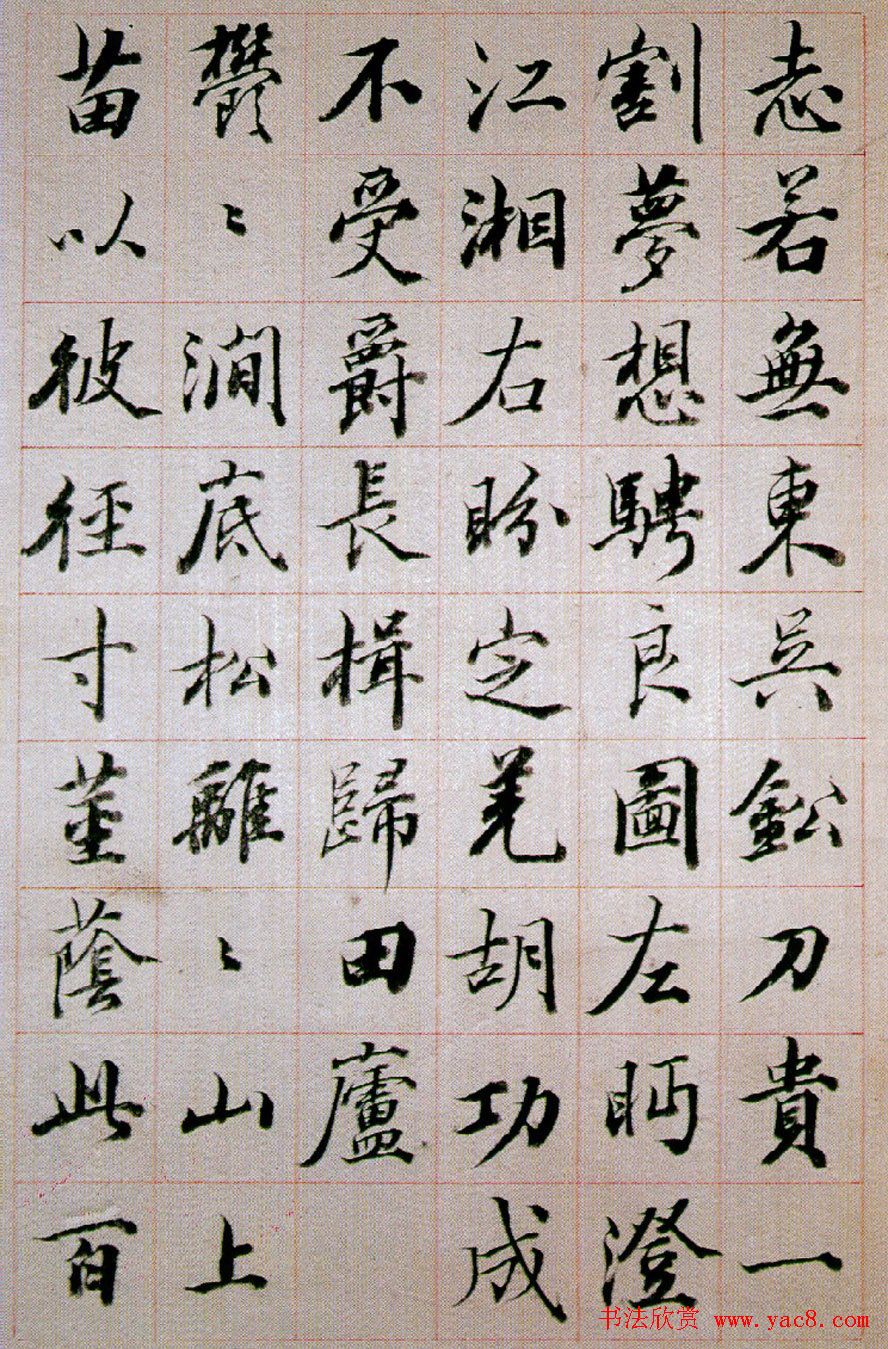 志若無東吳鈆刀貴一
割夢想騁良圖左眄澄
江湘右盼定羌胡功成
不受爵長揖歸田廬
鬱〻澗底松離〻山上
苗以彼徑寸莖蔭此百
书法欣赏 www.yac8.com